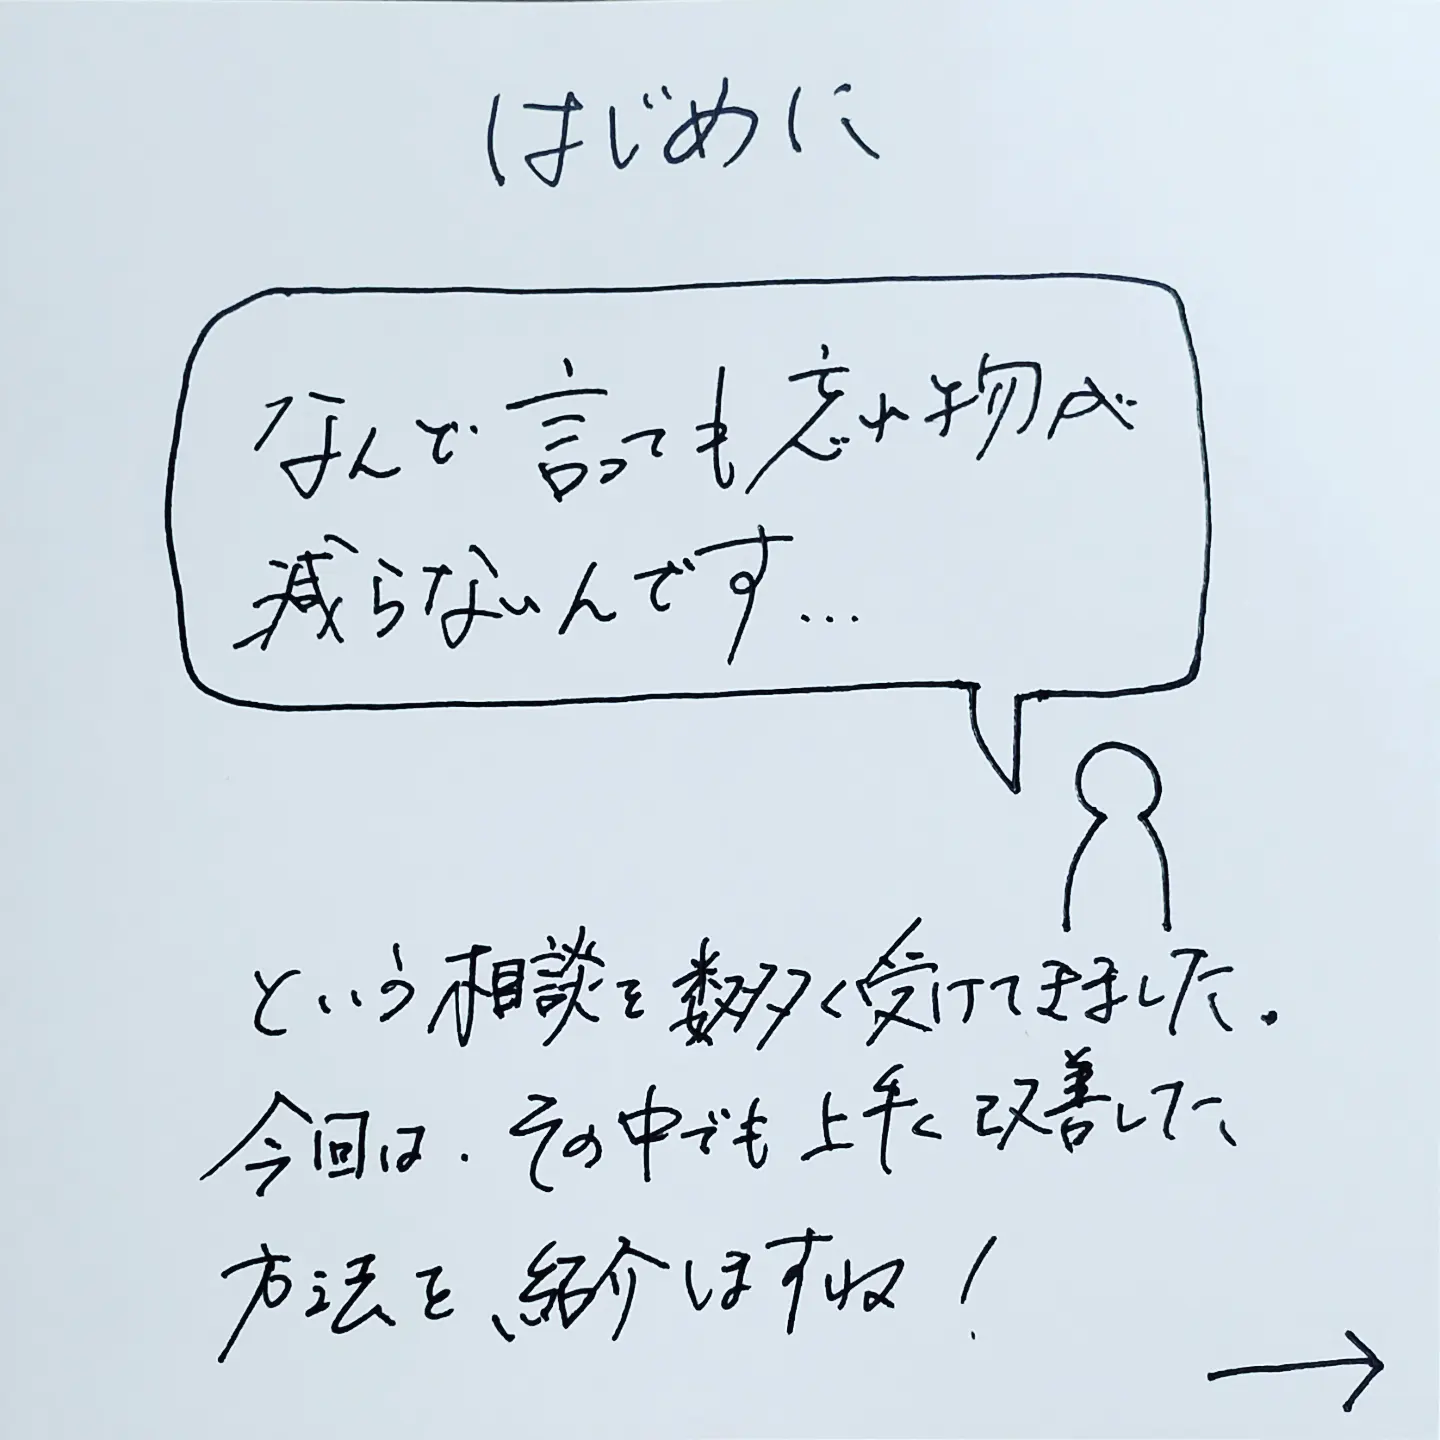 はじめに
なんで言っても忘れ物が
減らないんです…
という相談を数多く受けてきました.
今回は.その中でも上手く改善した
方法を、紹介しますね!